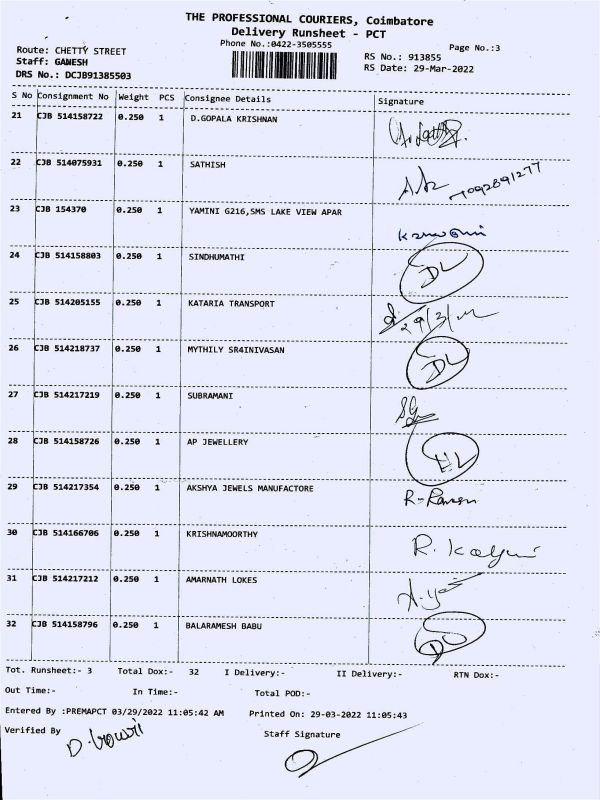 THE PROFESSIONAL COURIERS, Coimbatore
Delivery Runsheet - PCT
Phone No.:0422-3505555
Page No.:3
Route: CHETTY STREET
RS No.: 913855
Staff: GANESH
RS Date: 29-Mar-2022
DRS No.: DCJB91385503
S No Consignment No Weight PCS Consignee Details Signature
21 CJB 514158722 0.250 1 D.GOPALA KRISHNAN
22 CJB 514075931 0.250 1 SATHISH 7092891277
23 CJB 154370 0.250 1 YAMINI G216,SMS LAKE VIEW APAR
24 CJB 514158803 0.250 1 SINDHUMATHI DL
25 CJB 514205155 0.250 1 KATARIA TRANSPORT 29/3/22
26 CJB 514218737 0.250 1 MYTHILY SR4INIVASAN DL
27 CJB 514217219 0.250 1 SUBRAMANI
28 CJB 514158726 0.250 1 AP JEWELLERY HL
29 CJB 514217354 0.250 1 AKSHYA JEWELS MANUFACTORE R-Raman
30 CJB 514166706 0.250 1 KRISHNAMOORTHY R.
31 CJB 514217212 0.250 1 AMARNATH LOKES
32 CJB 514158796 0.250 1 BALARAMESH BABU DL
Tot. Runsheet:- 3 Total Dox:- 32 I Delivery:- II Delivery:- RTN Dox:-
Out Time:- In Time:- Total POD:-
Entered By :PREMAPCT 03/29/2022 11:05:42 AM Printed On: 29-03-2022 11:05:43
Verified By D. Gowri Staff Signature